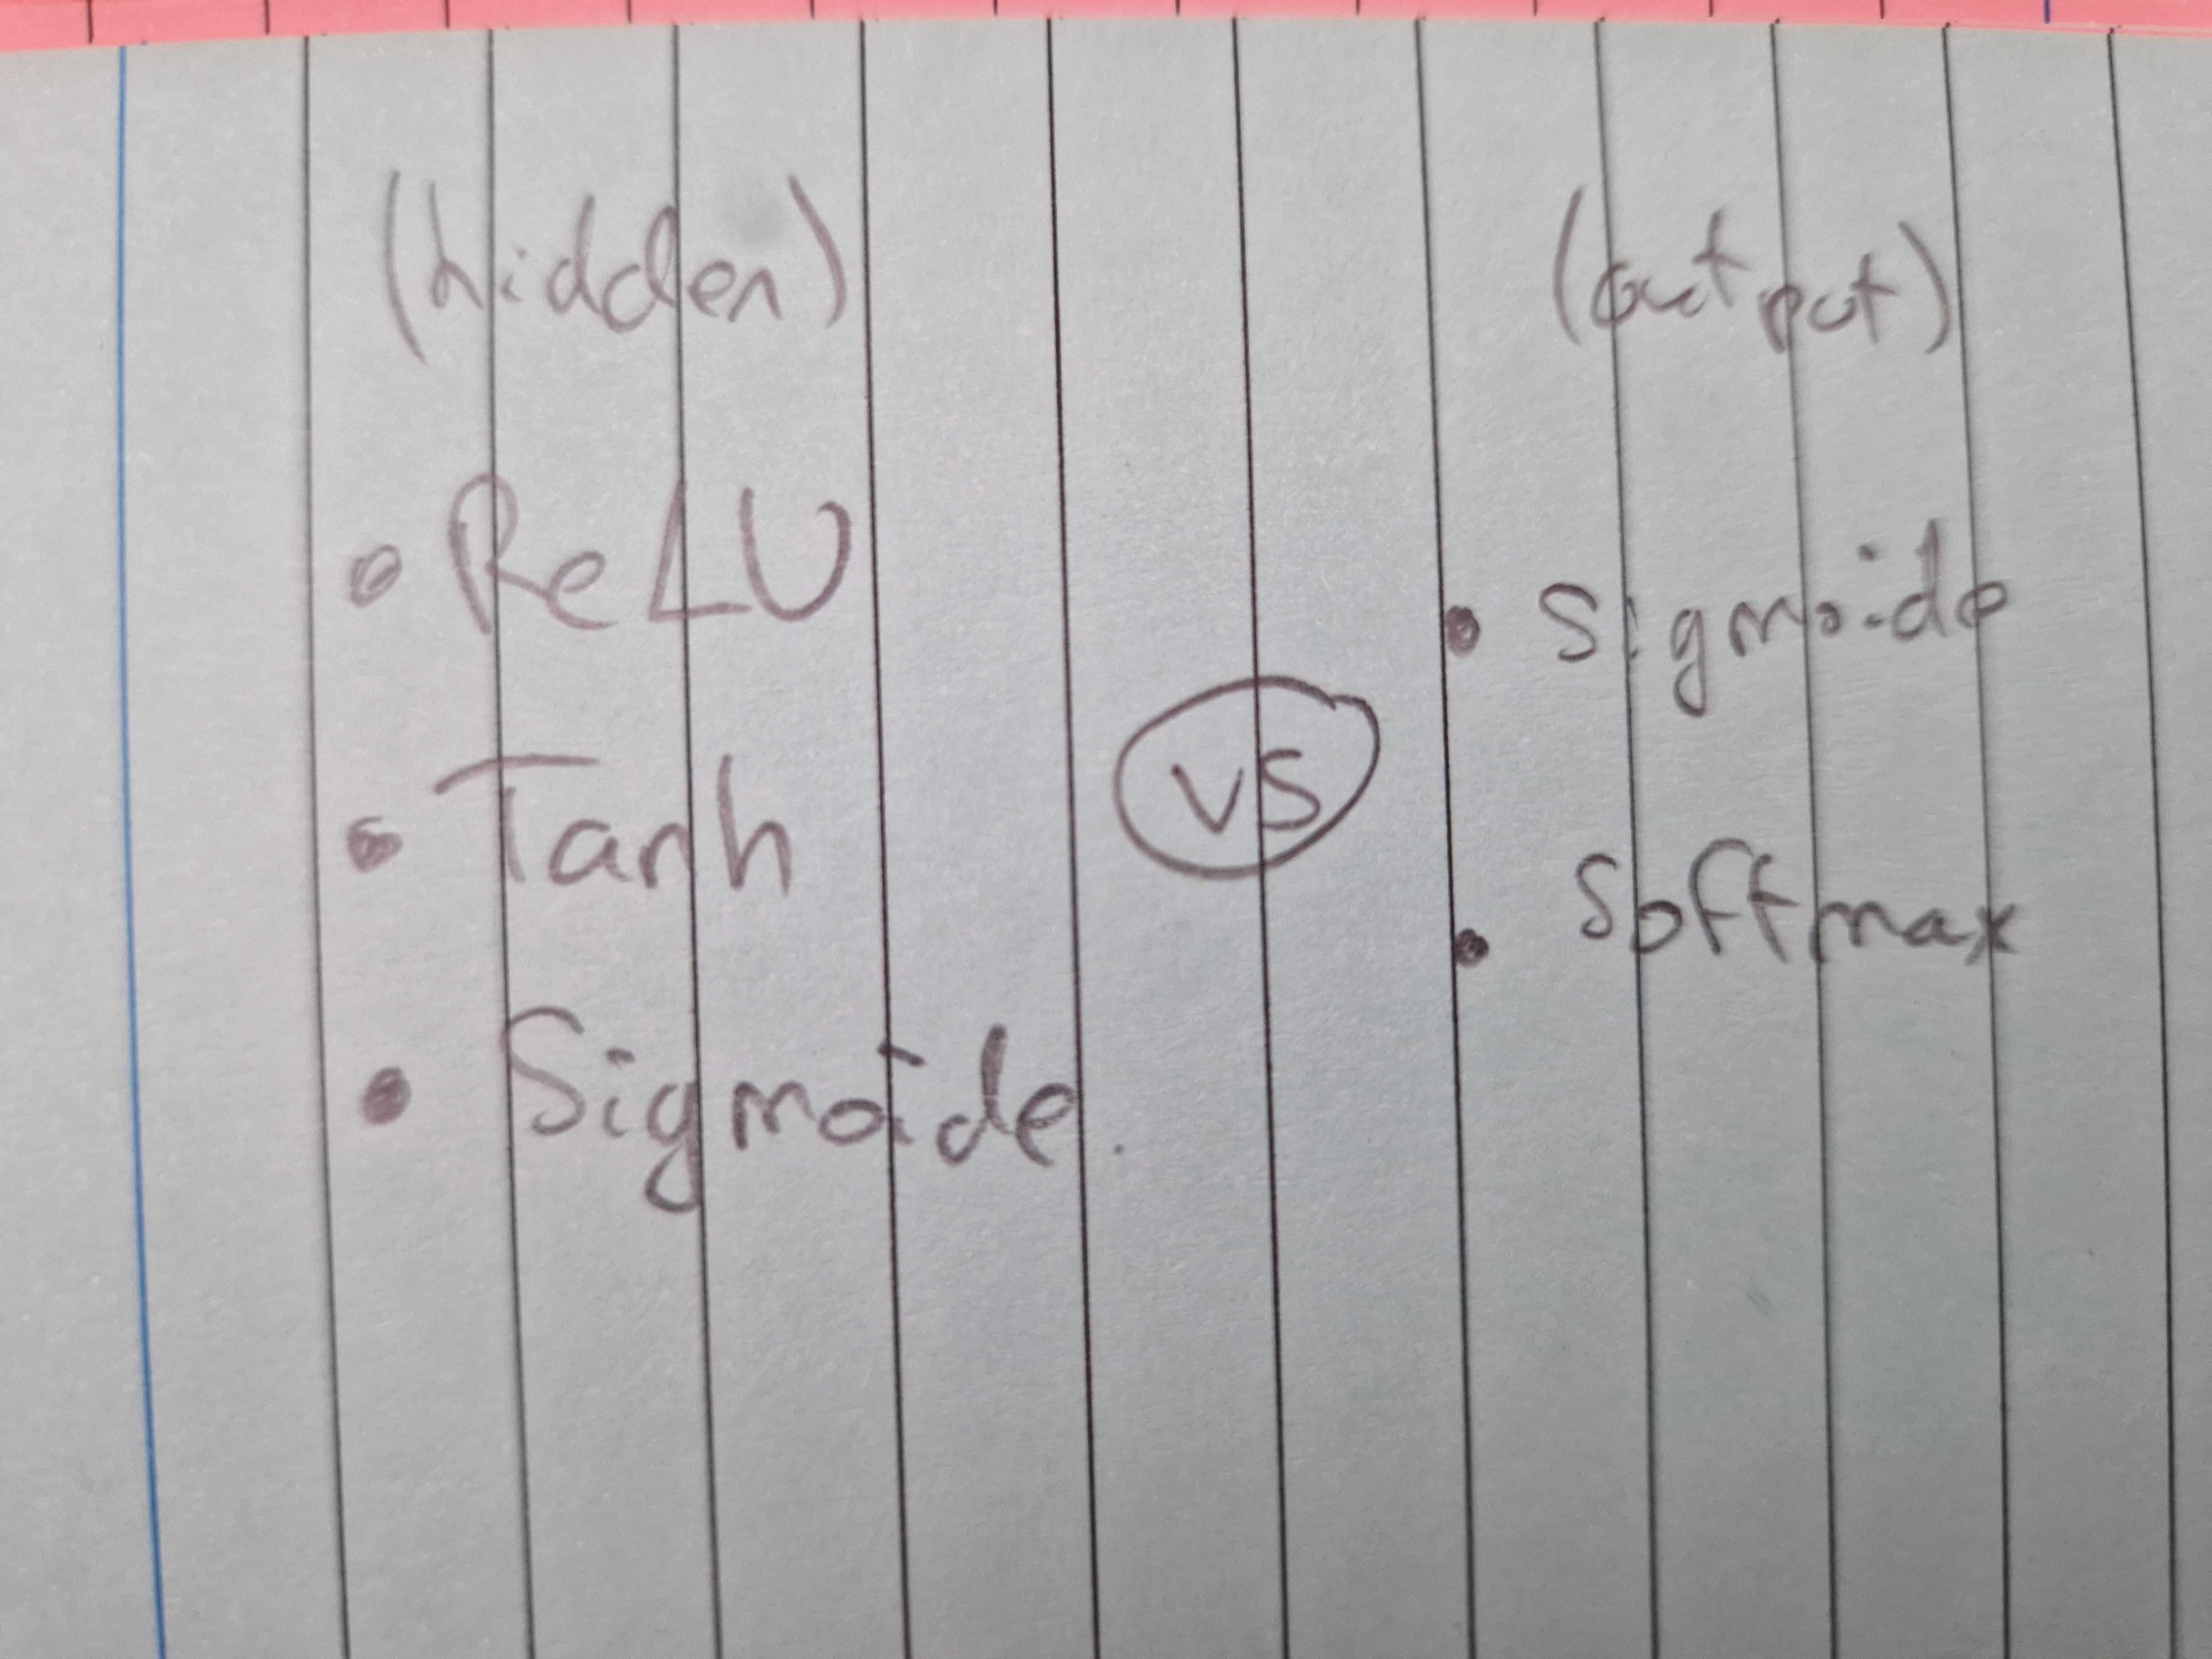 (hidden)
• ReLU
• Tanh
• Sigmoide.
vs
(output)
• Sigmoide
• Softmax